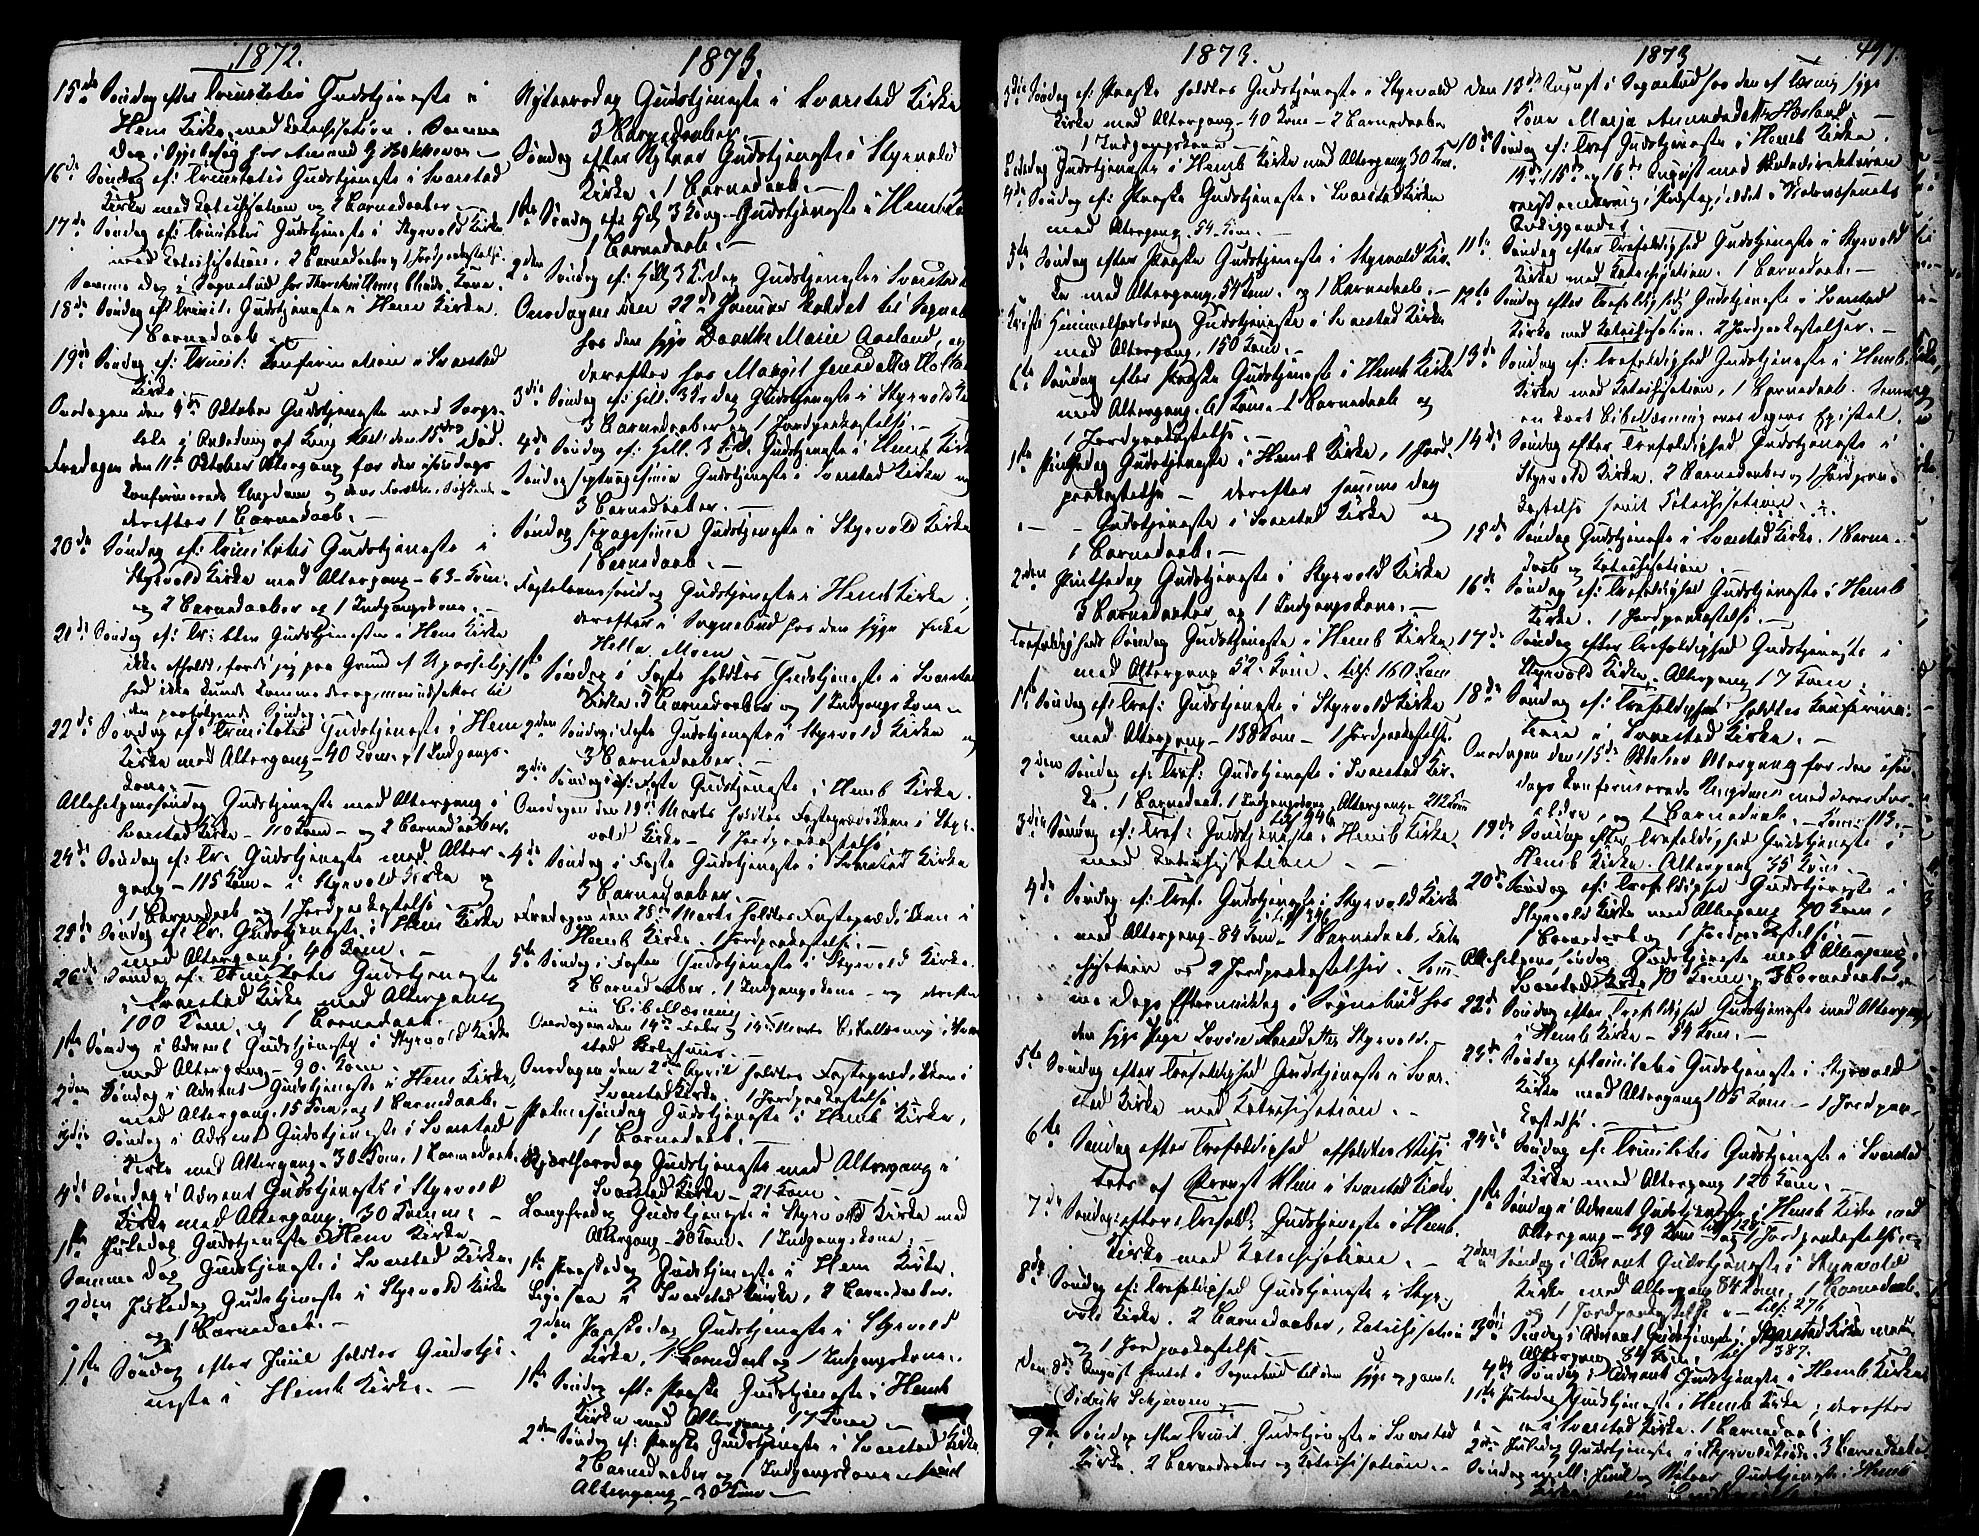 1872.
15de Søndag efter Trinitatis Gudstjeneste i
Hem Kirke med Katechisation. Samme
Dag i
16de Søndag ef: Trinitatis Gudstjeneste i Svarstad
Kirke med Katechisation og 2 Barnedaaber.
17de Søndag ef: Trinitatis Gudstjeneste i Styrvold Kirke
med Katechisation, 2 Barnedaaber, 1 Jordpaakastelse.
Samme Dag i Sognebud for Kone.
18de Søndag ef: Trinit: Gudstjeneste i Hem Kirke.
1 Barnedaab.
19de Søndag ef: Trinit: Konfirmation i Svarstad
Kirke.
Onsdagen den 9de Oktober Gudstjeneste med Sørge-
tale i Anledning af Kong Karl den 15des Død.
Fredagen den 11te Oktober Altergang for den i Søndags
Konfirmerede Ungdom og dens Forældre, Søskende
derefter 1 Barnedaab.
20de Søndag ef: Trinitatis Gudstjeneste i
Styrvold Kirke med Altergang – 63 – Kom.
og 2 Barnedaaber og 1 Indgangskone.
21de Søndag ef: Tr: blev Gudstjenesten i Hem Kirke
ikke afholdt, fordi jeg paa Grund af Upasselig-
hed ikke kunde komme derop, men udsattes til
den paafølgende Søndag.
22de Søndag ef: Trinitatis Gudstjeneste i Hem
Kirke med Altergang – 40 Kom. 1 Indgangs-
kone.
Allehelgenssøndag Gudstjeneste med Altergang i
Svarstad Kirke – 110 Kom – og 2 Barnedaaber.
24de Søndag ef: Tr. Gudstjeneste med Alter-
gang – 115 Kom – i Styrvold Kirke og
1 Barnedaab og 1 Jordpaakastelse.
25de Søndag ef: Tr. Gudstjeneste i Hem Kirke
med Altergang, 40 Kom.
26de Søndag ef: Trinitatis Gudstjeneste
i Svarstad Kirke med Altergang
100 Kom. og 1 Barnedaab.
1ste Søndag i Advent Gudstjeneste i Styrvold Kirke
med Altergang – 90 Kom.
2den Søndag i Advent Gudstjeneste i Hem Kirke,
med Altergang, 15 Kom, og 1 Barnedaab.
3die Søndag i Advent Gudstjeneste i Svarstad
Kirke med Altergang – 30 Kom, 1 Barnedaab.
4de Søndag i Advent Gudstjeneste i Styrvold
Kirke med Altergang, 30 Komm:
1ste Juledag Gudstjeneste i Hem Kirke
Samme Dag Gudstjeneste i Svarstad Kirke.
2den Juledag Gudstjeneste i Styrvold Kirke
og 1 Barnedaab.
1ste Søndag efter Juul holdtes Gudstje-
neste i Hemb Kirke.
1873.
Nytaarsdag Gudstjeneste i Svarstad Kirke
3 Barnedaaber.
Søndag efter Nytaar Gudstjeneste i Styrvold
Kirke. 1 Barnedaab.
1ste Søndag ef: Hel. 3 Kong. Gudstjeneste i Hemb
1 Barnedaab.
2den Søndag ef: Hell. 3 K. dag Gudstjeneste i Svarstad
Onsdagen den 22de Januar kaldet til Sogneb
hos den syge Dorthe Marie Aasland, og
derefter hos Margit Jensdatter
3die Søndag ef: Hell. 3 K. dag Gudstjeneste i Styrvold
3 Barnedaaber og 1 Jordpaakastelse.
4de Søndag ef: Hell. 3 K.d. Gudstjeneste i Hemb Kirke
Søndag septuagesima Gudstjeneste i Svarstad Kirke og
3 Barnedaaber.
Søndag sexagesima Gudstjeneste i Styrvold Kirke
1 Barnedaab.
Fastelavnssøndag Gudstjeneste i Hemb Kirke;
derefter i Sognebud hos den syge Enke
Helle Moen.
1ste Søndag i Faste holdtes Gudstjeneste i Svarstad
Kirke. 5 Barnedaaber og 1 Indgangskone.
2den Søndag i Faste Gudstjeneste i Styrvold Kirke og
3 Barnedaaber.
3die Søndag i Faste Gudstjeneste i Hemb Kirke.
Onsdagen den 19de Marts holdtes Fasteprædiken i Styr-
vold Kirke – 1 Jordpaakastelse
4de Søndag i Faste Gudstjeneste i Svarstad Kirke
3 Barnedaaber.
Fredagen den 28de Marts holdtes Fasteprædiken i
Hemb Kirke. 1 Jordpaakastelse.
5te Søndag i Fasten Gudstjeneste i Styrvold Kirke.
3 Barnedaaber. 1 Indgangskone – og derefter
en Bibellæsning
Onsdagen den 14de Febr og 14de Marts Bibellæsning i Svar-
stad Skolehuus.
Onsdagen den 2den April holdtes Fasteprædiken i
Svarstad Kirke. 1 Jordpaakastelse
Palmesøndag Gudstjeneste i Hemb Kirke,
1 Barnedaab.
Skjærthorsdag Gudstjeneste med Altergang i
Svarstad Kirke – 21 Kom.
Langfredag Gudstjeneste i Styrvold Kirke med
Altergang – 30 Kom. 1 Indgangskone.
1ste Paaskedag Gudstjeneste i Hem Kirke.
Ligesaa i Svarstad Kirke, 2 Barnedaaber.
2den Paaskedag Gudstjeneste i Styrvold
Kirke, 1 Barnedaab og 1 Indgangskone.
1ste Søndag eft: Paaske Gudstjeneste i Hemb
Kirke med Altergang 17 Kom.
2den Søndag ef: Paaske Gudstjeneste i Svarstad Kirke,
2 Barnedaaber og 1 Indgangskone med
Altergang – 30 Kom.
1873.
3die Søndag ef: Paaske holdtes Gudstjeneste i Styrvold
Kirke med Altergang – 40 Kom – 2 Barnedaaber
og 1 Indgangskone.
Bededag Gudstjeneste i Hemb Kirke med Altergang 30 Kom.
4de Søndag ef: Paaske Gudstjeneste i Svarstad Kirke
med Altergang – 54 Kom.
5te Søndag efter Paaske Gudstjeneste i Styrvold Kir-
ke med Altergang, 54 Kom. og 1 Barnedaab.
Kristi Himmelfartsdag Gudstjeneste i Svarstad Kirke
med Altergang, 150 Kom.
6te Søndag efter Paaske Gudstjeneste i Hemb Kirke
med Altergang. Kom. Barnedaab og
1 Jordpaakastelse.
1ste Pintsedag Gudstjeneste i Hemb Kirke, 1 Jord-
paakastelse – derefter samme Dag
Gudstjeneste i Svarstad Kirke og
1 Barnedaab.
2den Pintsedag Gudstjeneste i Styrvold Kirke
3 Barnedaaber og 1 Indgangskone.
Trefoldigheds Søndag Gudstjeneste i Hemb Kirke
med Altergang 52 Kom. til: 160 Kom
1ste Søndag ef: Tref: Gudstjeneste i Styrvold Kirke
med Altergang – 138 Kom – 1 Jordpaakastelse.
2den Søndag ef: Tref: Gudstjeneste i Svarstad Kir-
ke. 1 Barnedaab. 1 Indgangskone, Altergang 212 Kom
3die Søndag ef: Tref: Gudstjeneste i Hemb Kirke
med Katechisation.
4de Søndag ef: Tref. Gudstjeneste i Styrvold Kirke
med Altergang – 84 Kom – 1 Barnedaab, Kate-
chisation og 2 Jordpaakastelser. Sam-
me Dags Eftermiddag i Sognebud hos
den syge Pige Lovise Styrvold.
5te Søndag efter Trefoldighed Gudstjeneste i Svar-
stad Kirke med Katechisation.
6te Søndag efter Trefoldighed afholdtes Visi-
tats af Provst i Svarstad Kirke.
7de Søndag efter Trefold: Gudstjeneste i Hemb
Kirke med Katechisation.
8de Søndag ef: Trefoldighed Gudstjeneste i Styr-
vold Kirke. 2 Barnedaaber, Katechisation
og 1 Jordpaakastelse.
Den 8de August hentet i Sognebud til den syge og gamle
Didrik Schjerven.
9de Søndag efter Trinit. Gudstjeneste i Svarstad
Kirke. 2 Barnedaaber og Katechisation.
1873
497.
Den 13de August i Sognebud hos den af Tæring syge
Kone Maria
10de Søndag ef: Tref Gudstjeneste i Hemb Kirke.
14de, 15de og 16de August med Skoledirektøren
11te Søndag efter Trefoldighed Gudstjeneste i Styrvold
Kirke med Katechisation. 1 Barnedaab.
12te Søndag efter Trefoldighed Gudstjeneste i Svarstad
Kirke med Katechisation. 2 Jordpaakastelser.
13de Søndag ef: Trefoldighed Gudstjeneste i Hemb
Kirke med Katechisation, 1 Barnedaab. Samme Dag
en kort Bibellæsning over Dagens Epistel.
14de Søndag efter Trefoldighed Gudstjeneste i
Styrvold Kirke. 2 Barnedaaber og 1 Jordpaa-
kastelse samt Katechisation.
15de Søndag Gudstjeneste i Svarstad Kirke. 1 Barne-
daab og Katechisation.
16de Søndag ef: Trefoldighed Gudstjeneste i Hemb
Kirke. 1 Jordpaakastelse.
17de Søndag efter Trefoldighed Gudstjeneste i
Styrvold Kirke. Altergang 17 Kom.
18de Søndag ef: Trefoldighed holdtes Konfirma-
tion i Svarstad Kirke.
Onsdagen den 15de Oktober Altergang for den i Søn-
dags konfirmerede Ungdom med deres For-
ældre, og 1 Barnedaab. – Kom: 113.
19de Søndag efter Trefoldighed Gudstjeneste i
Hemb Kirke. Altergang 35 Kom.
20de Søndag ef: Trefoldighed Gudstjeneste i
Styrvold Kirke med Altergang 70 Kom,
1 Barnedaab og 1 Jordpaakastelse.
Allehelgens Søndag Gudstjeneste med Altergang i
Svarstad Kirke 70 Kom, 3 Barnedaaber.
22de Søndag efter Trefoldighed Gudstjeneste med Altergang
i Hemb Kirke – 54 Kom.
23de Søndag ef: Trinitatis Gudstjeneste i Styrvold
Kirke med Altergang 105 Kom – 1 Jordpaa-
kastelse.
24de Søndag ef: Trinitatis Gudstjeneste i Svarstad
Kirke med Altergang 120 Kom.
1ste Søndag i Advent Gudstjeneste i Hemb Kirke med
Altergang – 39 Kom – og 1 Jordpaakastelse.
2den Søndag i Advent Gudstjeneste i Styrvold
Kirke med Altergang 84 Kom, 1 Barnedaab
og 1 Jordpaakastelse – til: 276
3die Søndag i Advent Gudstjeneste i Svarstad Kirke med
Altergang, 84 Kom, til 387.
4de Søndag i Advent Gudstjeneste i Hemb Kirke
1ste Juledag Gudstjeneste i Hemb Kirke; derefter
i Svarstad Kirke. 1 Barnedaab.
2den Juledag Gudstjeneste i Styrvold Kirke. 3 Barnedaaber
Søndag mell: Juul og Nytaar Gudstjeneste i Hemb